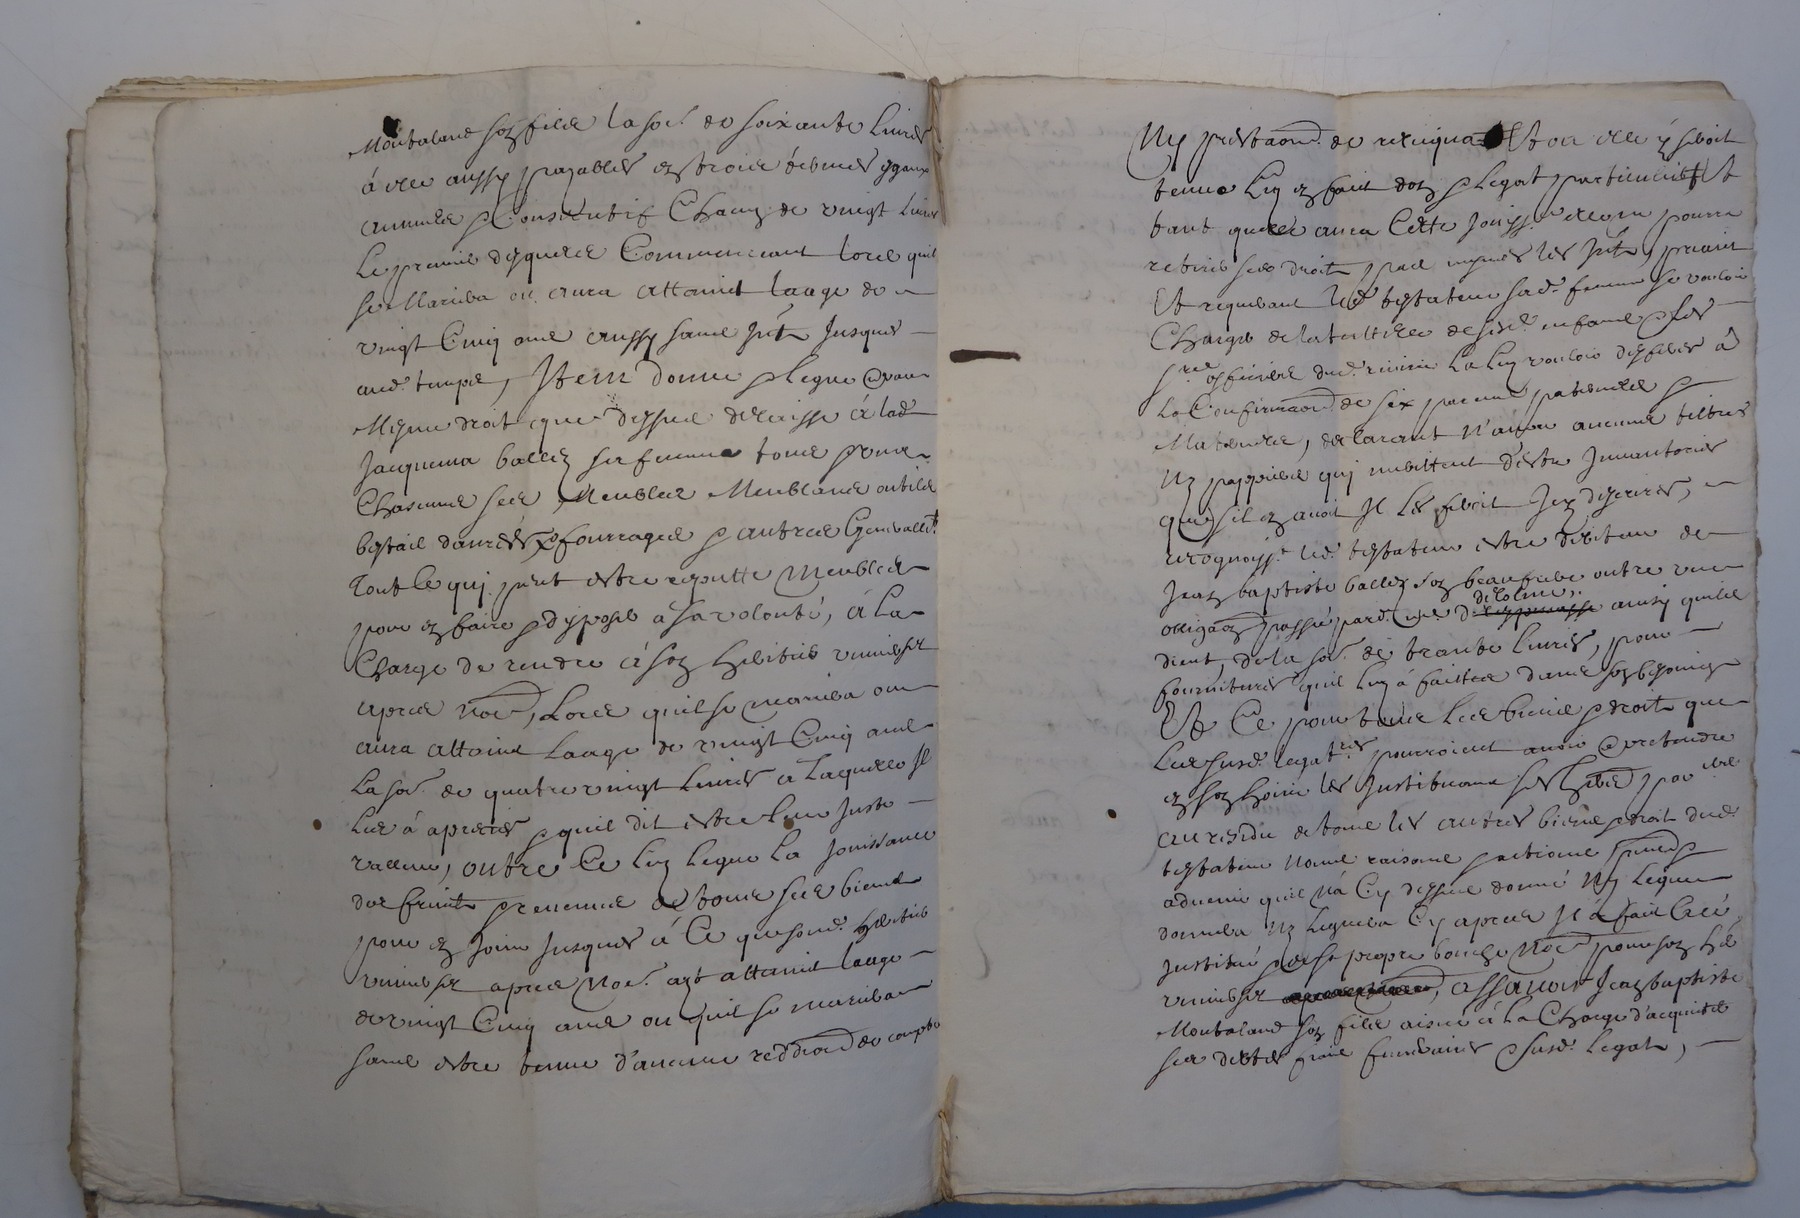 Montaland son filz la so.e de soixante Livres
à elle aussy payables en trois termes egaux
annuels & Consecutifz Chacung de vingt Livres
Le premier desquels Commencant lors quil
se Mariera ou aura attaint laage de
vingt Cinq ans aussy sans Jnt. Jusques
aud. temps, Item donne & legue
Mesme droit que dessus delaisse à lad.
Jacquema ballez sa femme tous
Chascuns ses Meubles Meublans outilz
bestail danrés, & fourrages & autres Generallem.t
Tout Ce qui peut estre reputté Meubles
pour en faire & disposer a sa volonté, à La
Charge de rendre à son heritier univer.el
apres No.é, Lors quil se mariera ou
aura attaint Laage de vingt Cinq ans
La so.e de quatre vingt Livres à Laquelle Il
Les à apreciés & quil dit estre leur Juste
valleur, outre Ce luy legue La Jouissance
des fruits & revenus de tous ses biens
pour en Jouir Jusques à Ce que sond. heritier
univer.el apres No.é ayt attaint laage
de vingt Cinq ans ou quil se mariera
sans estre tenue d'aucune reddi.on de compte
Ny prestaon. de reliqua Et ou elle y seroit
tenue Luy en fait don & legat particulier Et
tant quelle aura Cette Jouiss.e elle ne pourra
retirer ses droits les Jnt.s, priant
Et requerant led. testateur sad. femme se vouloir
Charger de la tutelle de sesd. enfans & les
S.rs officiers dud. La luy vouloir defferer à
La Confirmaon. de six parens paternels &
Maternels, declarant N'avoir aucuns tiltres
Ny pappiers qui meritent d'estre Inventoriés
que s'il en avoit Il les feroit Icy descrire,
recognoiss.t led. testateur estre debiteur de
Jean baptiste ballez son beaufrere outre une
obligaon. passé pard. de Lolme, ainsy quil
dient, de la so.e de trante Livres, pour
fournitures quil luy a faittes dans son besoing
Et Ce pour tous Les biens & droits que
Les susd. legat.res pourroient avoir & pretendre
en son hoirie les Instituant ses herit. par
Au residu de tous les autres biens & droits dud.
testateur Noms raisons & actions,
advenir quil n'a Cy dessus donné Ny legué
donnera Ny leguera Cy apres Il a fait Créé
Institué & de sa propre bouche No.é pour son hér.
univer.el, assavoir Jean baptiste
Montaland son filz aisné à La Charge d'acquitter
ses debtes frais funeraires & susd. legats,